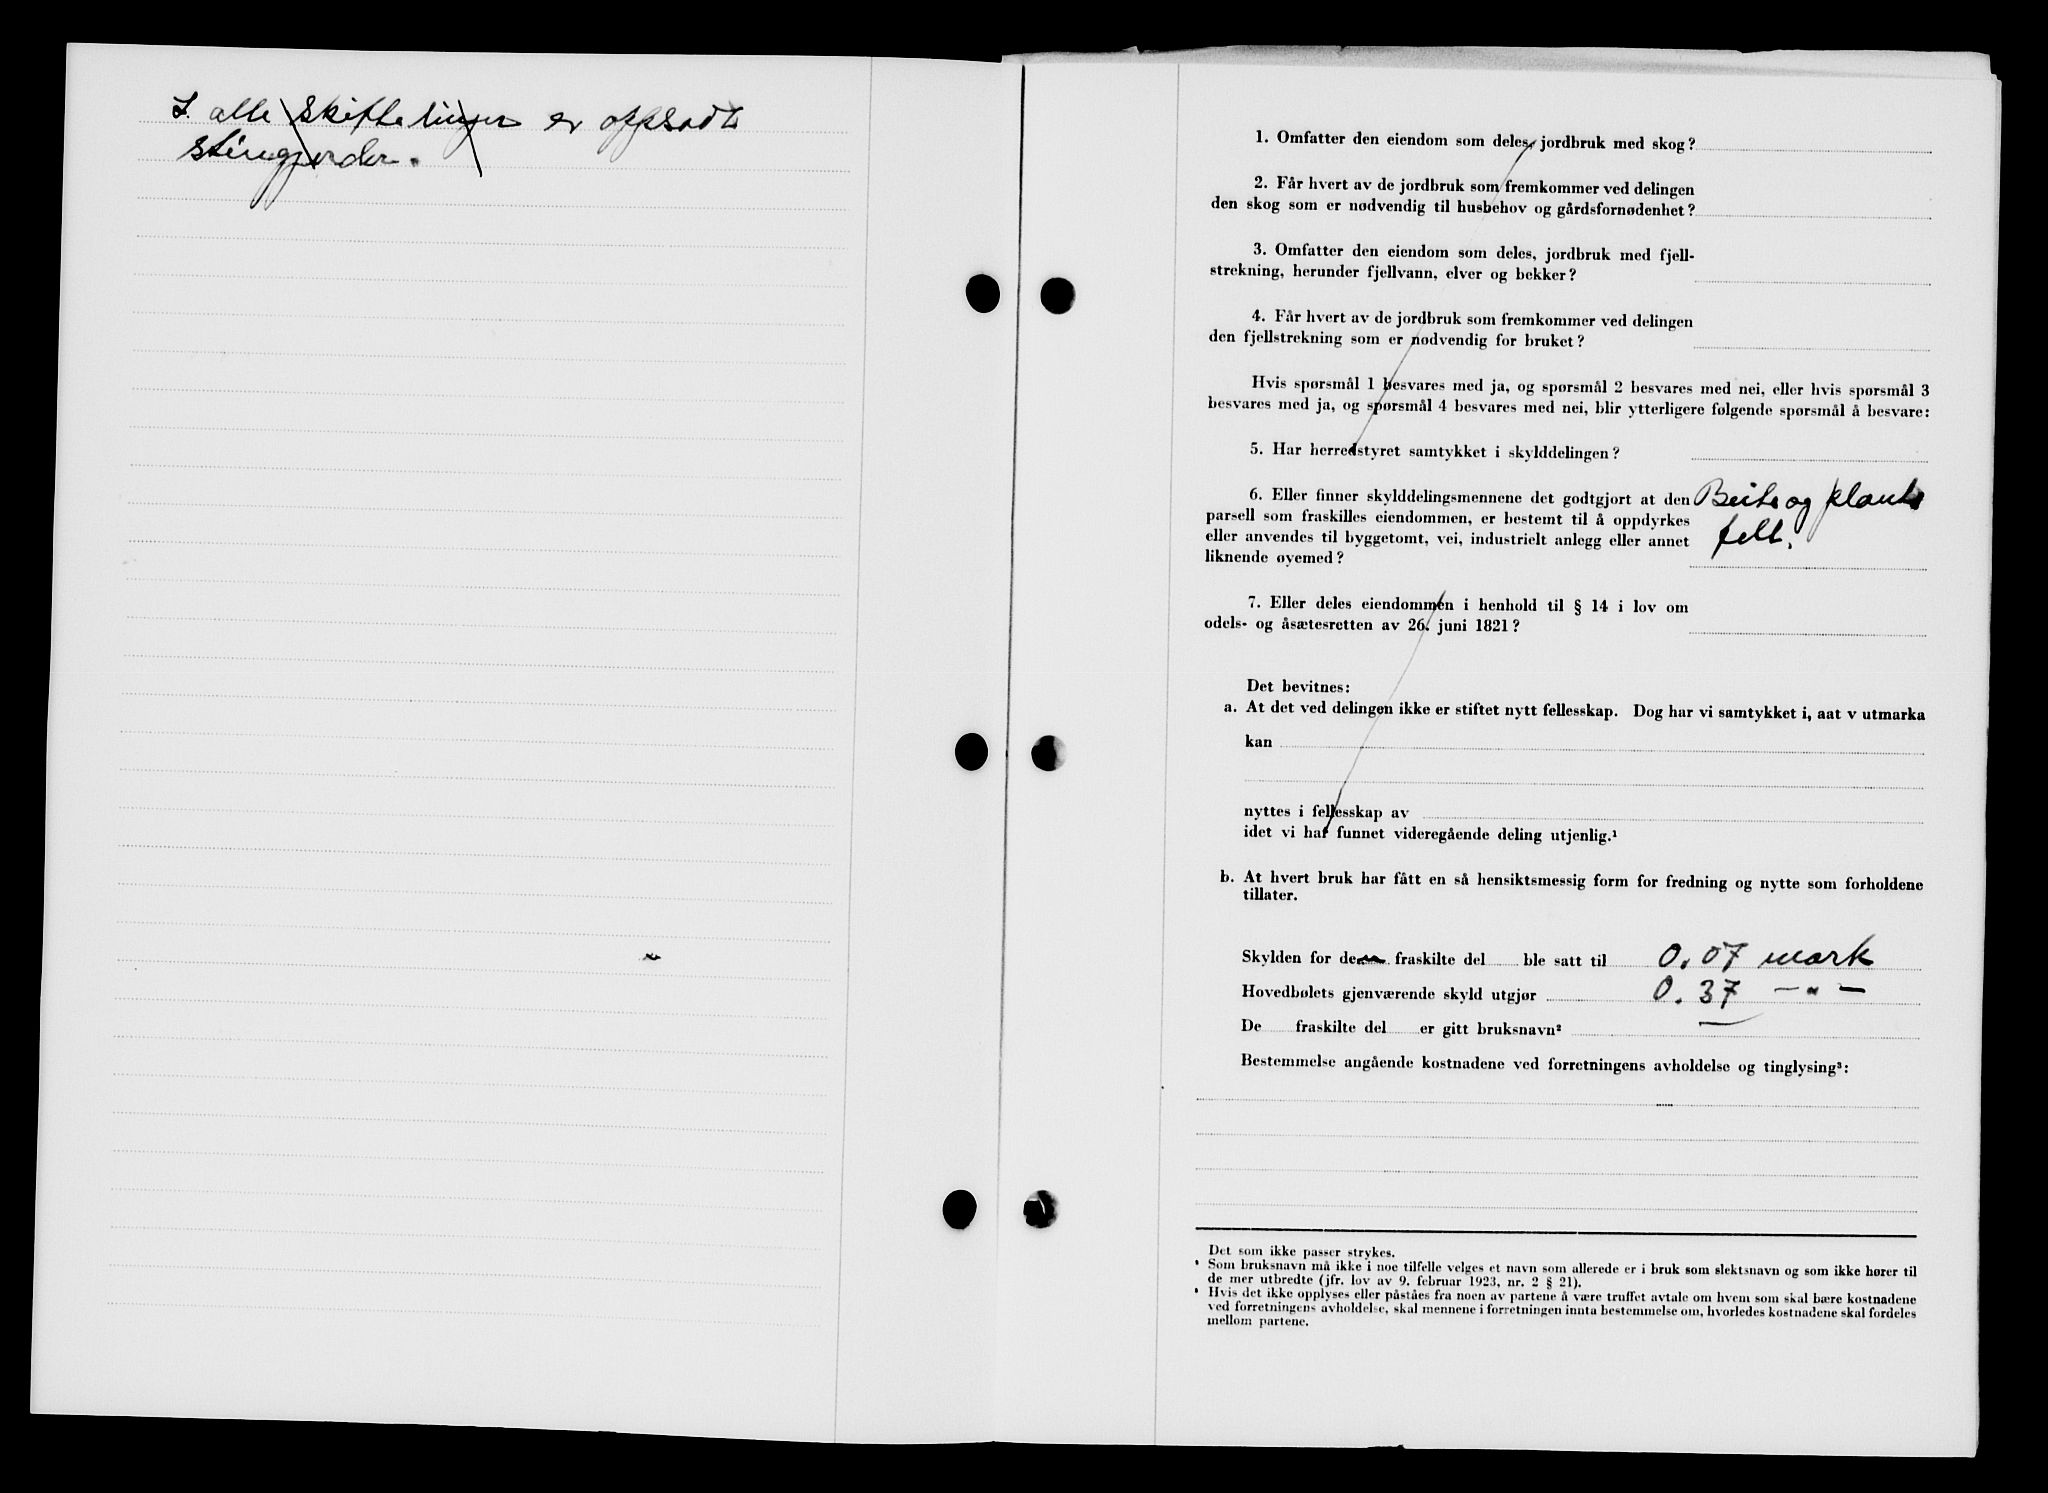 I alle skiftelinjer er oppsadt
steingjerder.
1. Omfatter den eiendom som deles, jordbruk med skog?
2. Får hvert av de jordbruk som fremkommer ved delingen
den skog som er nødvendig til husbehov og gårdsfornødenhet?
3. Omfatter den eiendom som deles, jordbruk med fjell-
strekning, herunder fjellvann, elver og bekker?
4. Får hvert av de jordbruk som fremkommer ved delingen
den fjellstrekning som er nødvendig for bruket?
Hvis spørsmål 1 besvares med ja, og spørsmål 2 besvares med nei, eller hvis spørsmål 3
besvares med ja, og spørsmål 4 besvares med nei, blir ytterligere følgende spørsmål å besvare:
5. Har herredstyret samtykket i skylddelingen?
6. Eller finner skylddelingsmennene det godtgjort at den Beite og plante
parsell som fraskilles eiendommen, er bestemt til å oppdyrkes felt.
eller anvendes til byggetomt, vei, industrielt anlegg eller annet
liknende øyemed?
7. Eller deles eiendommen i henhold til § 14 i lov om
odels- og åsætesretten av 26. juni 1821?
Det bevitnes:
a. At det ved delingen ikke er stiftet nytt fellesskap. Dog har vi samtykket i, aat v utmarka
kan
nyttes i fellesskap av
idet vi har funnet videregående deling utjenlig.¹
b. At hvert bruk har fått en så hensiktsmessig form for fredning og nytte som forholdene
tillater.
Skylden for den fraskilte del ble satt til 0.07 mark
Hovedbølets gjenværende skyld utgjør 0.37 -"-
De fraskilte del er gitt bruksnavn²
Bestemmelse angående kostnadene ved forretningens avholdelse og tinglysing³:
Det som ikke passer strykes.
Som bruksnavn må ikke i noe tilfelle velges et navn som allerede er i bruk som slektsnavn og som ikke hører til
de mer utbredte (jfr. lov av 9. februar 1923, nr. 2 § 21).
Hvis det ikke opplyses eller påståes fra noen av partene å være truffet avtale om hvem som skal bære kostnadene
ved forretningens avholdelse, skal mennene i forretningen innta bestemmelse om, hvorledes kostnadene skal fordeles
mellom partene.